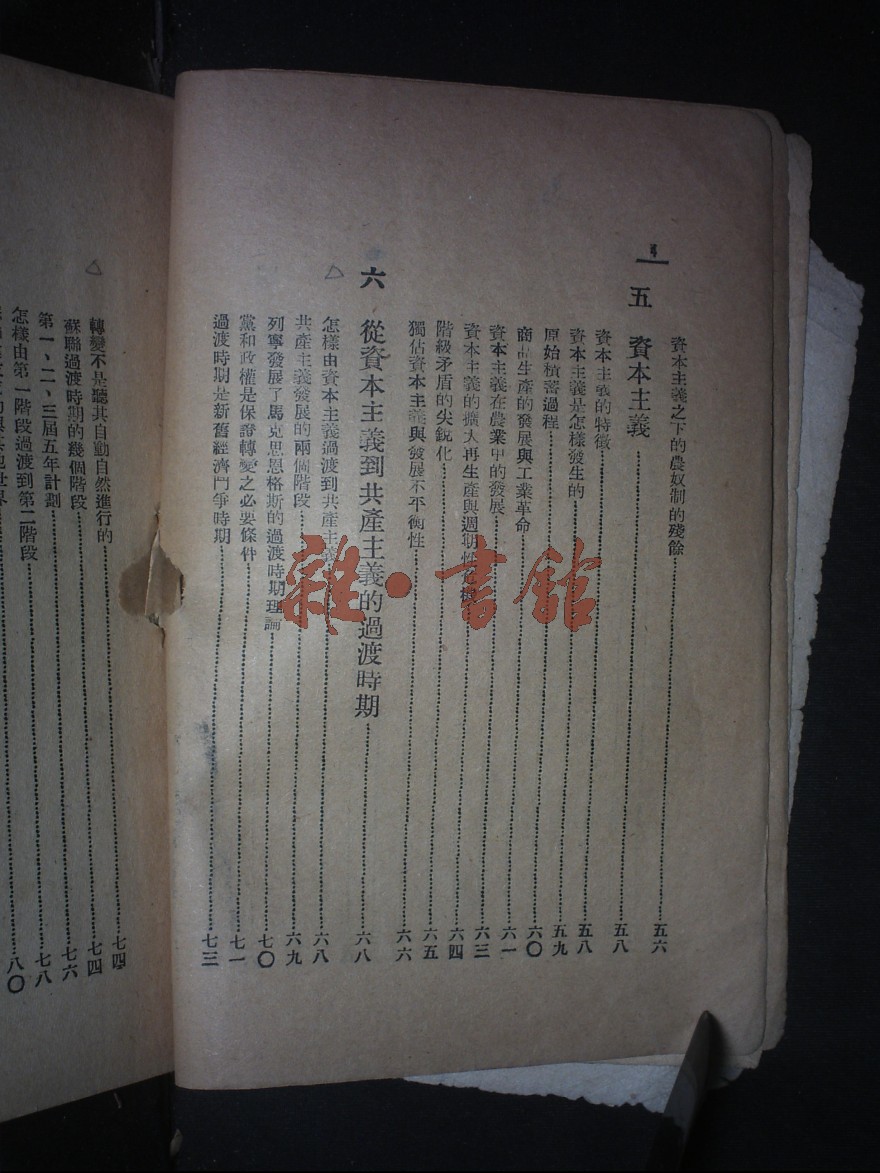 4
資本主義之下的農奴制的殘餘……五六
五 資本主義……五八
資本主義的特徵……五八
資本主義是怎樣發生的……五九
原始積蓄過程……六〇
商品生產的發展與工業革命……六一
資本主義在農業中的發展……六三
資本主義的擴大再生產與週期性危機……六四
階級矛盾的尖銳化……六五
獨佔資本主義與發展不平衡性……六六
六 從資本主義到共產主義的過渡時期……六八
怎樣由資本主義過渡到共產主義……六八
共產主義發展的兩個階段……六九
列寧發展了馬克思恩格斯的過渡時期理論……七〇
黨和政權是保證轉變之必要條件……七一
過渡時期是新舊經濟鬥爭時期……七三
轉變不是聽其自動自然進行的……七四
蘇聯過渡時期的幾個階段……七四
第一、二、三屆五年計劃……七六
怎樣由第一階段過渡到第二階段……七八
八〇
雜·書館